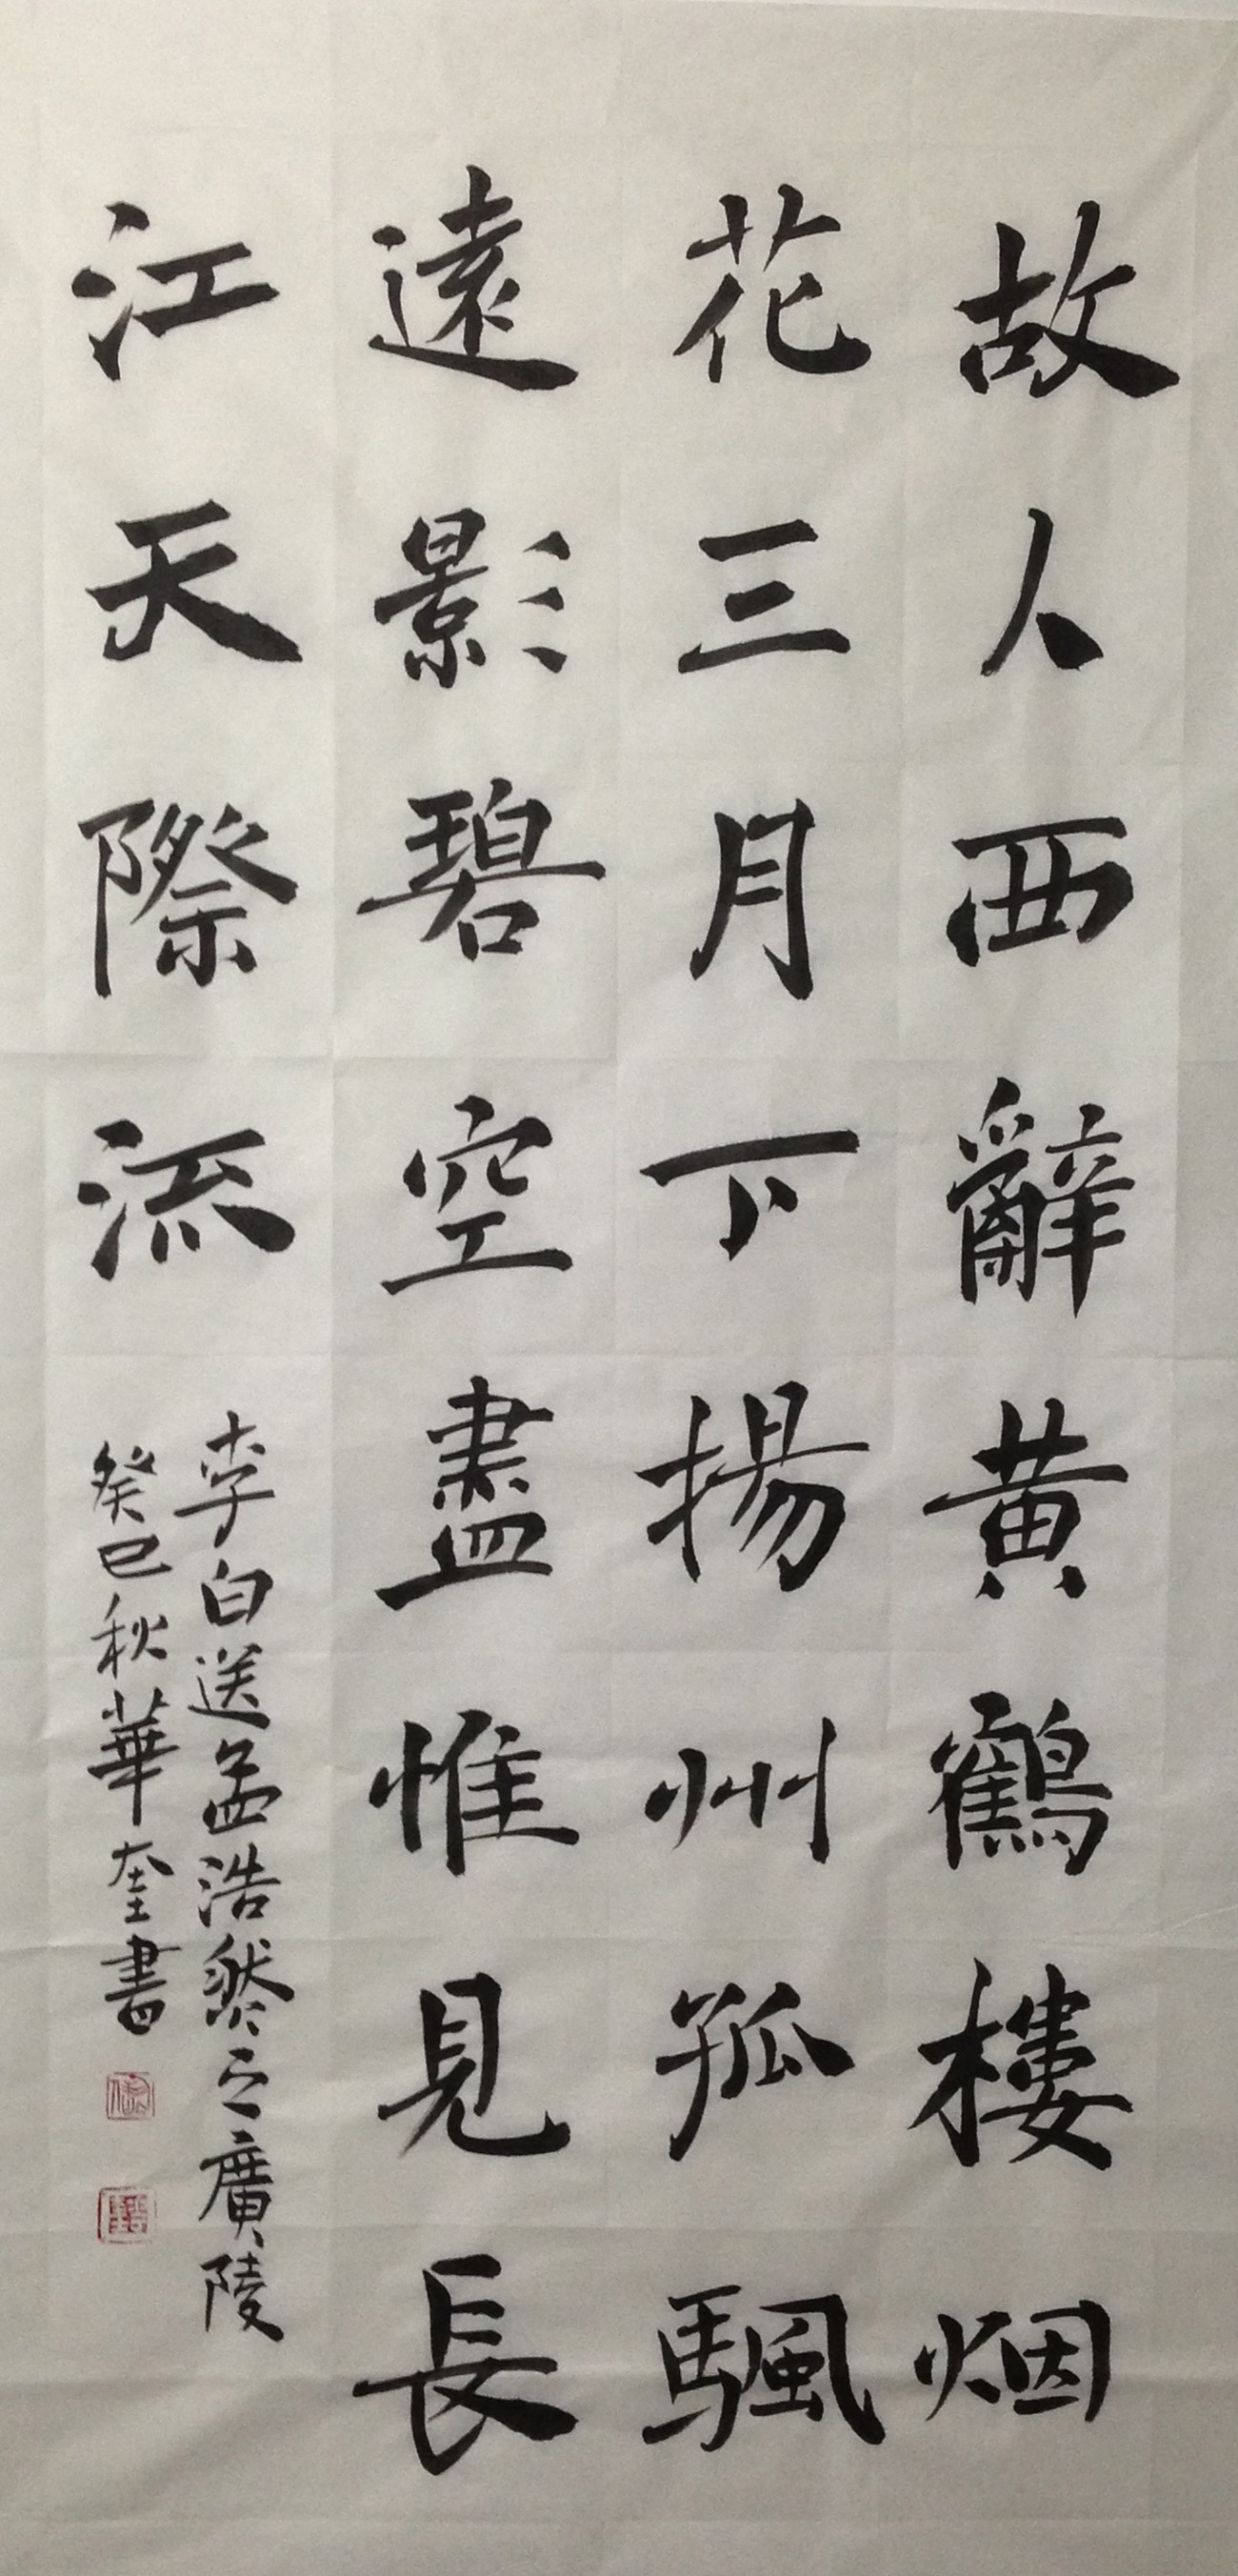 故人西辭黄鶴樓烟
花三月下揚州孤颿
遠影碧空盡惟見長
江天際流
李白送孟浩然之廣陵
癸巳秋華奎書